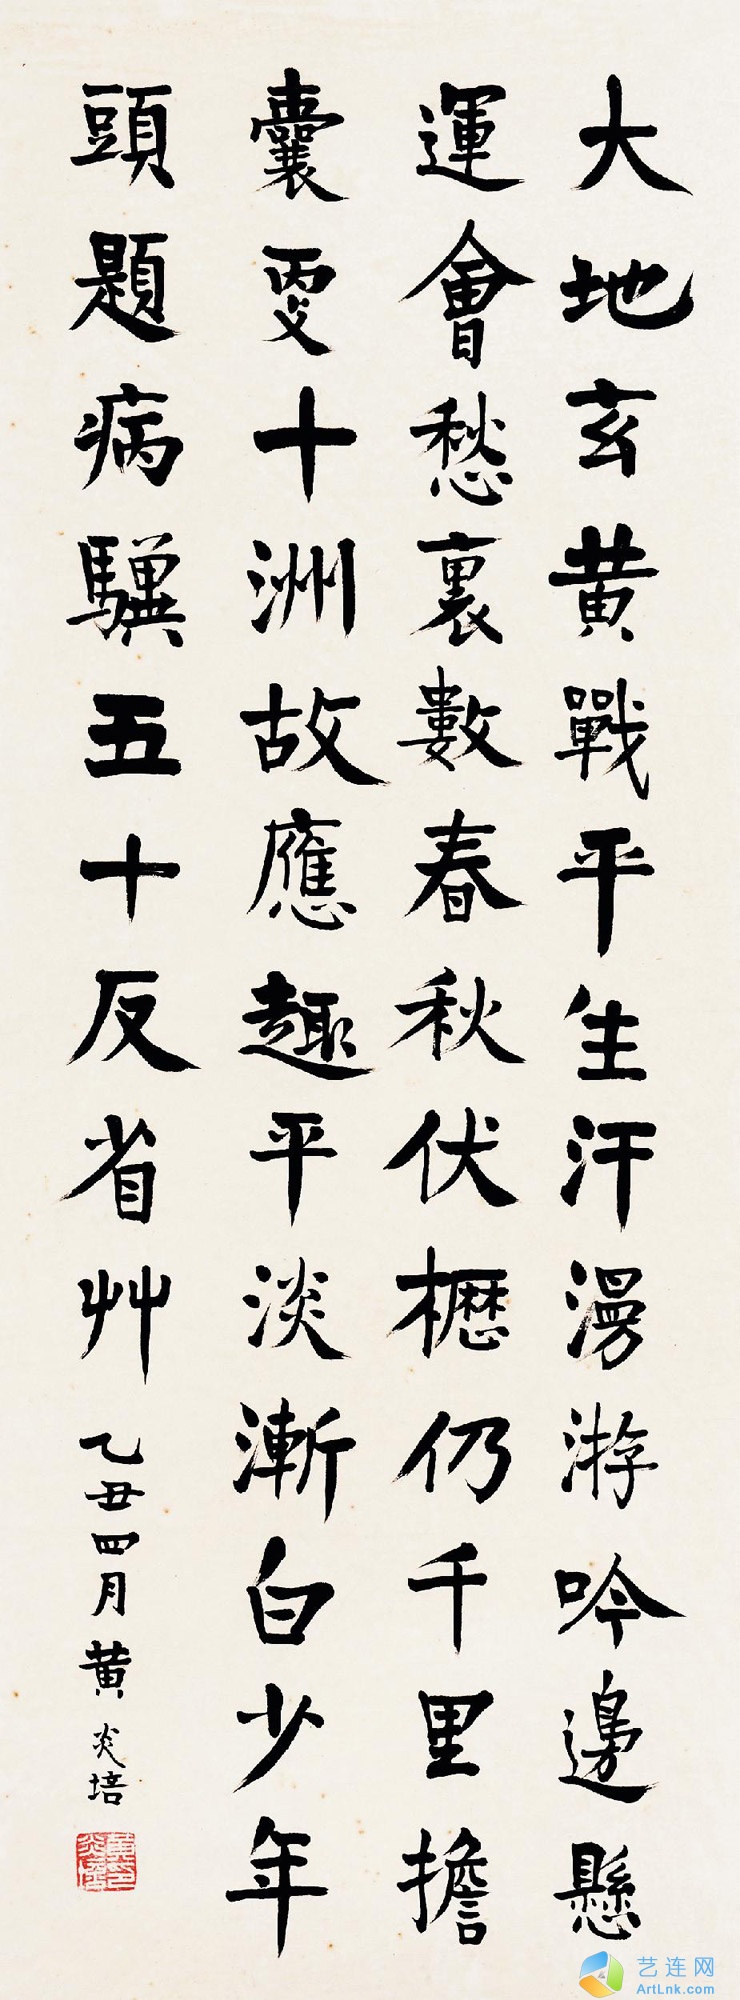 大地玄黄戰平生汗漫游吟邊懸
運會愁裏數春秋伏櫪仍千里擔
囊㪅十洲故應趣平淡漸白少年
頭題病驥五十反省艸
乙丑四月黄炎培
黄炎培印
艺连网
ArtLnk.com